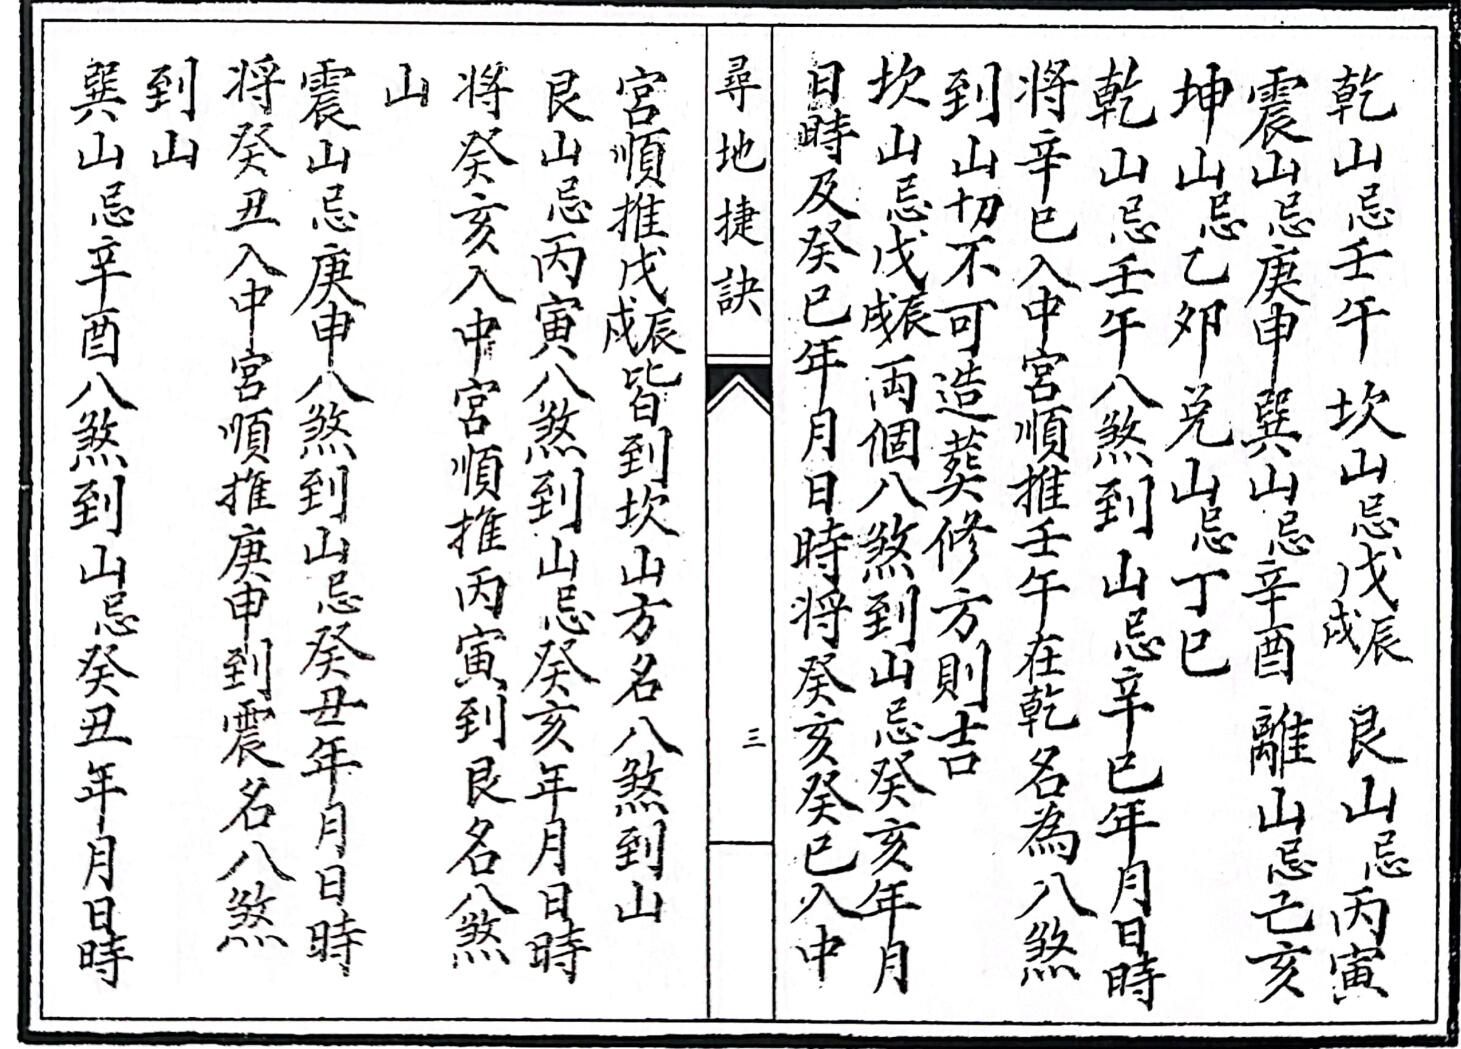 乾山忌壬午 坎山忌戊辰戌 艮山忌丙寅
震山忌庚申 巽山忌辛酉 離山忌己亥
坤山忌乙夘 兌山忌丁巳
乾山忌壬午八煞到山忌辛巳年月日時
将辛巳入中宮順推壬午在乾名為八煞
到山切不可造葬修方則吉
坎山忌戊辰戌両個八煞到山忌癸亥年月
日時及癸巳年月日時将癸亥癸巳入中
尋地捷訣
三
宮順推戊辰戌皆到坎山方名八煞到山
艮山忌丙寅八煞到山忌癸亥年月日時
将癸亥入中宮順推丙寅到艮名八煞
山
震山忌庚申八煞到山忌癸丑年月日時
将癸丑入中宮順推庚申到震名八煞
到山
巽山忌辛酉八煞到山忌癸丑年月日時